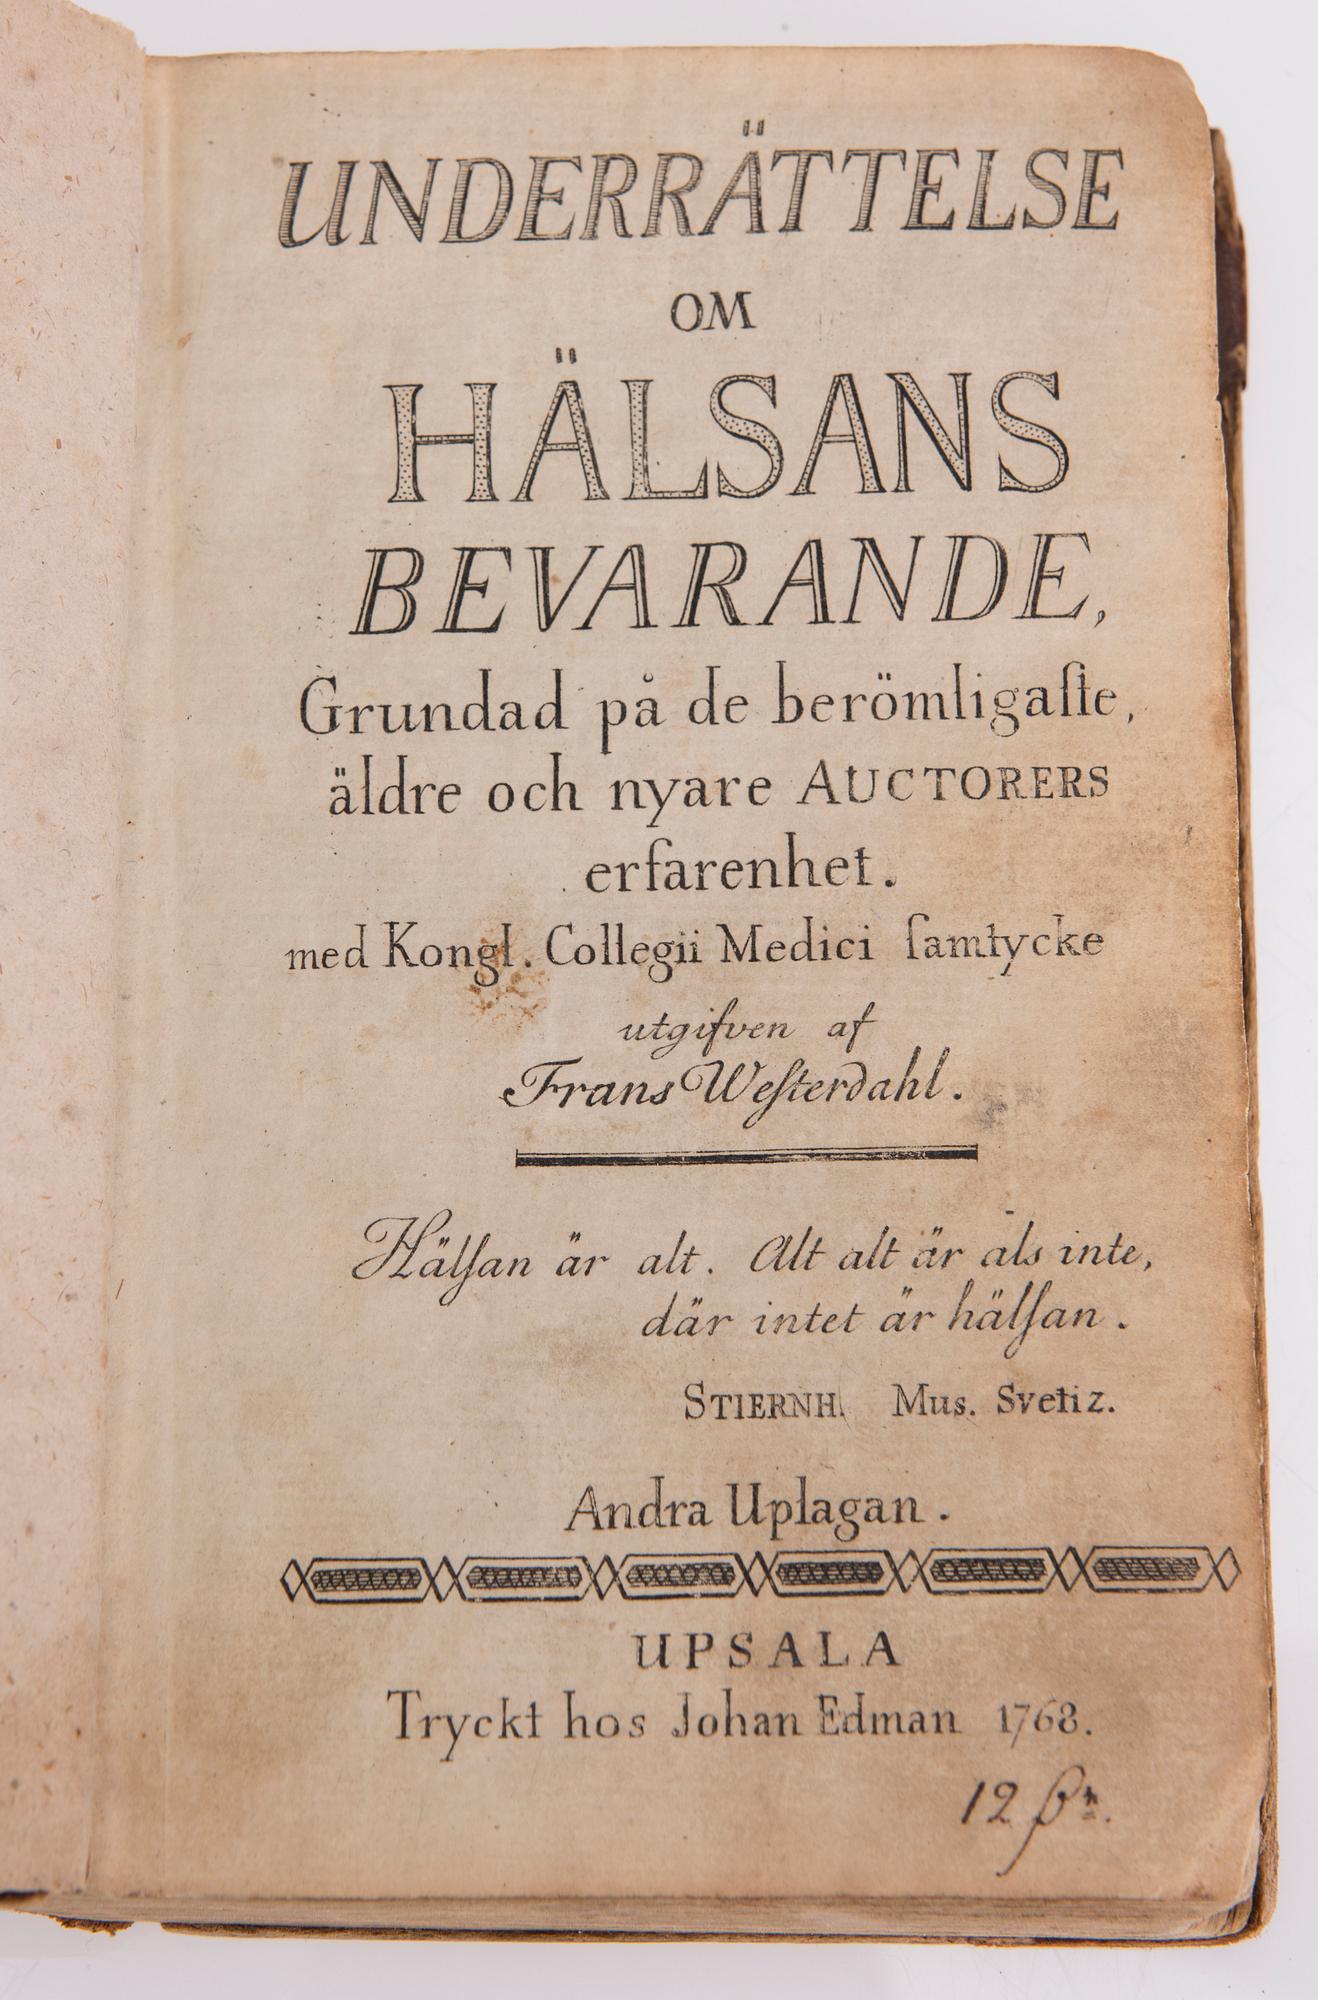 UNDERRÄTTELSE
OM
HÄLSANS
BEVARANDE,
Grundad på de berömligaſte,
äldre och nyare AUCTORERS
erfarenhet.
med Kongl. Collegii Medici ſamtycke
utgifven af
Frans Weſterdahl.
Hälſan är alt. Alt alt är als inte,
där intet är hälſan.
STIERNH. Mus. Svetiz.
Andra Uplagan.
UPSALA
Tryckt hos Johan Edman 1768.
12